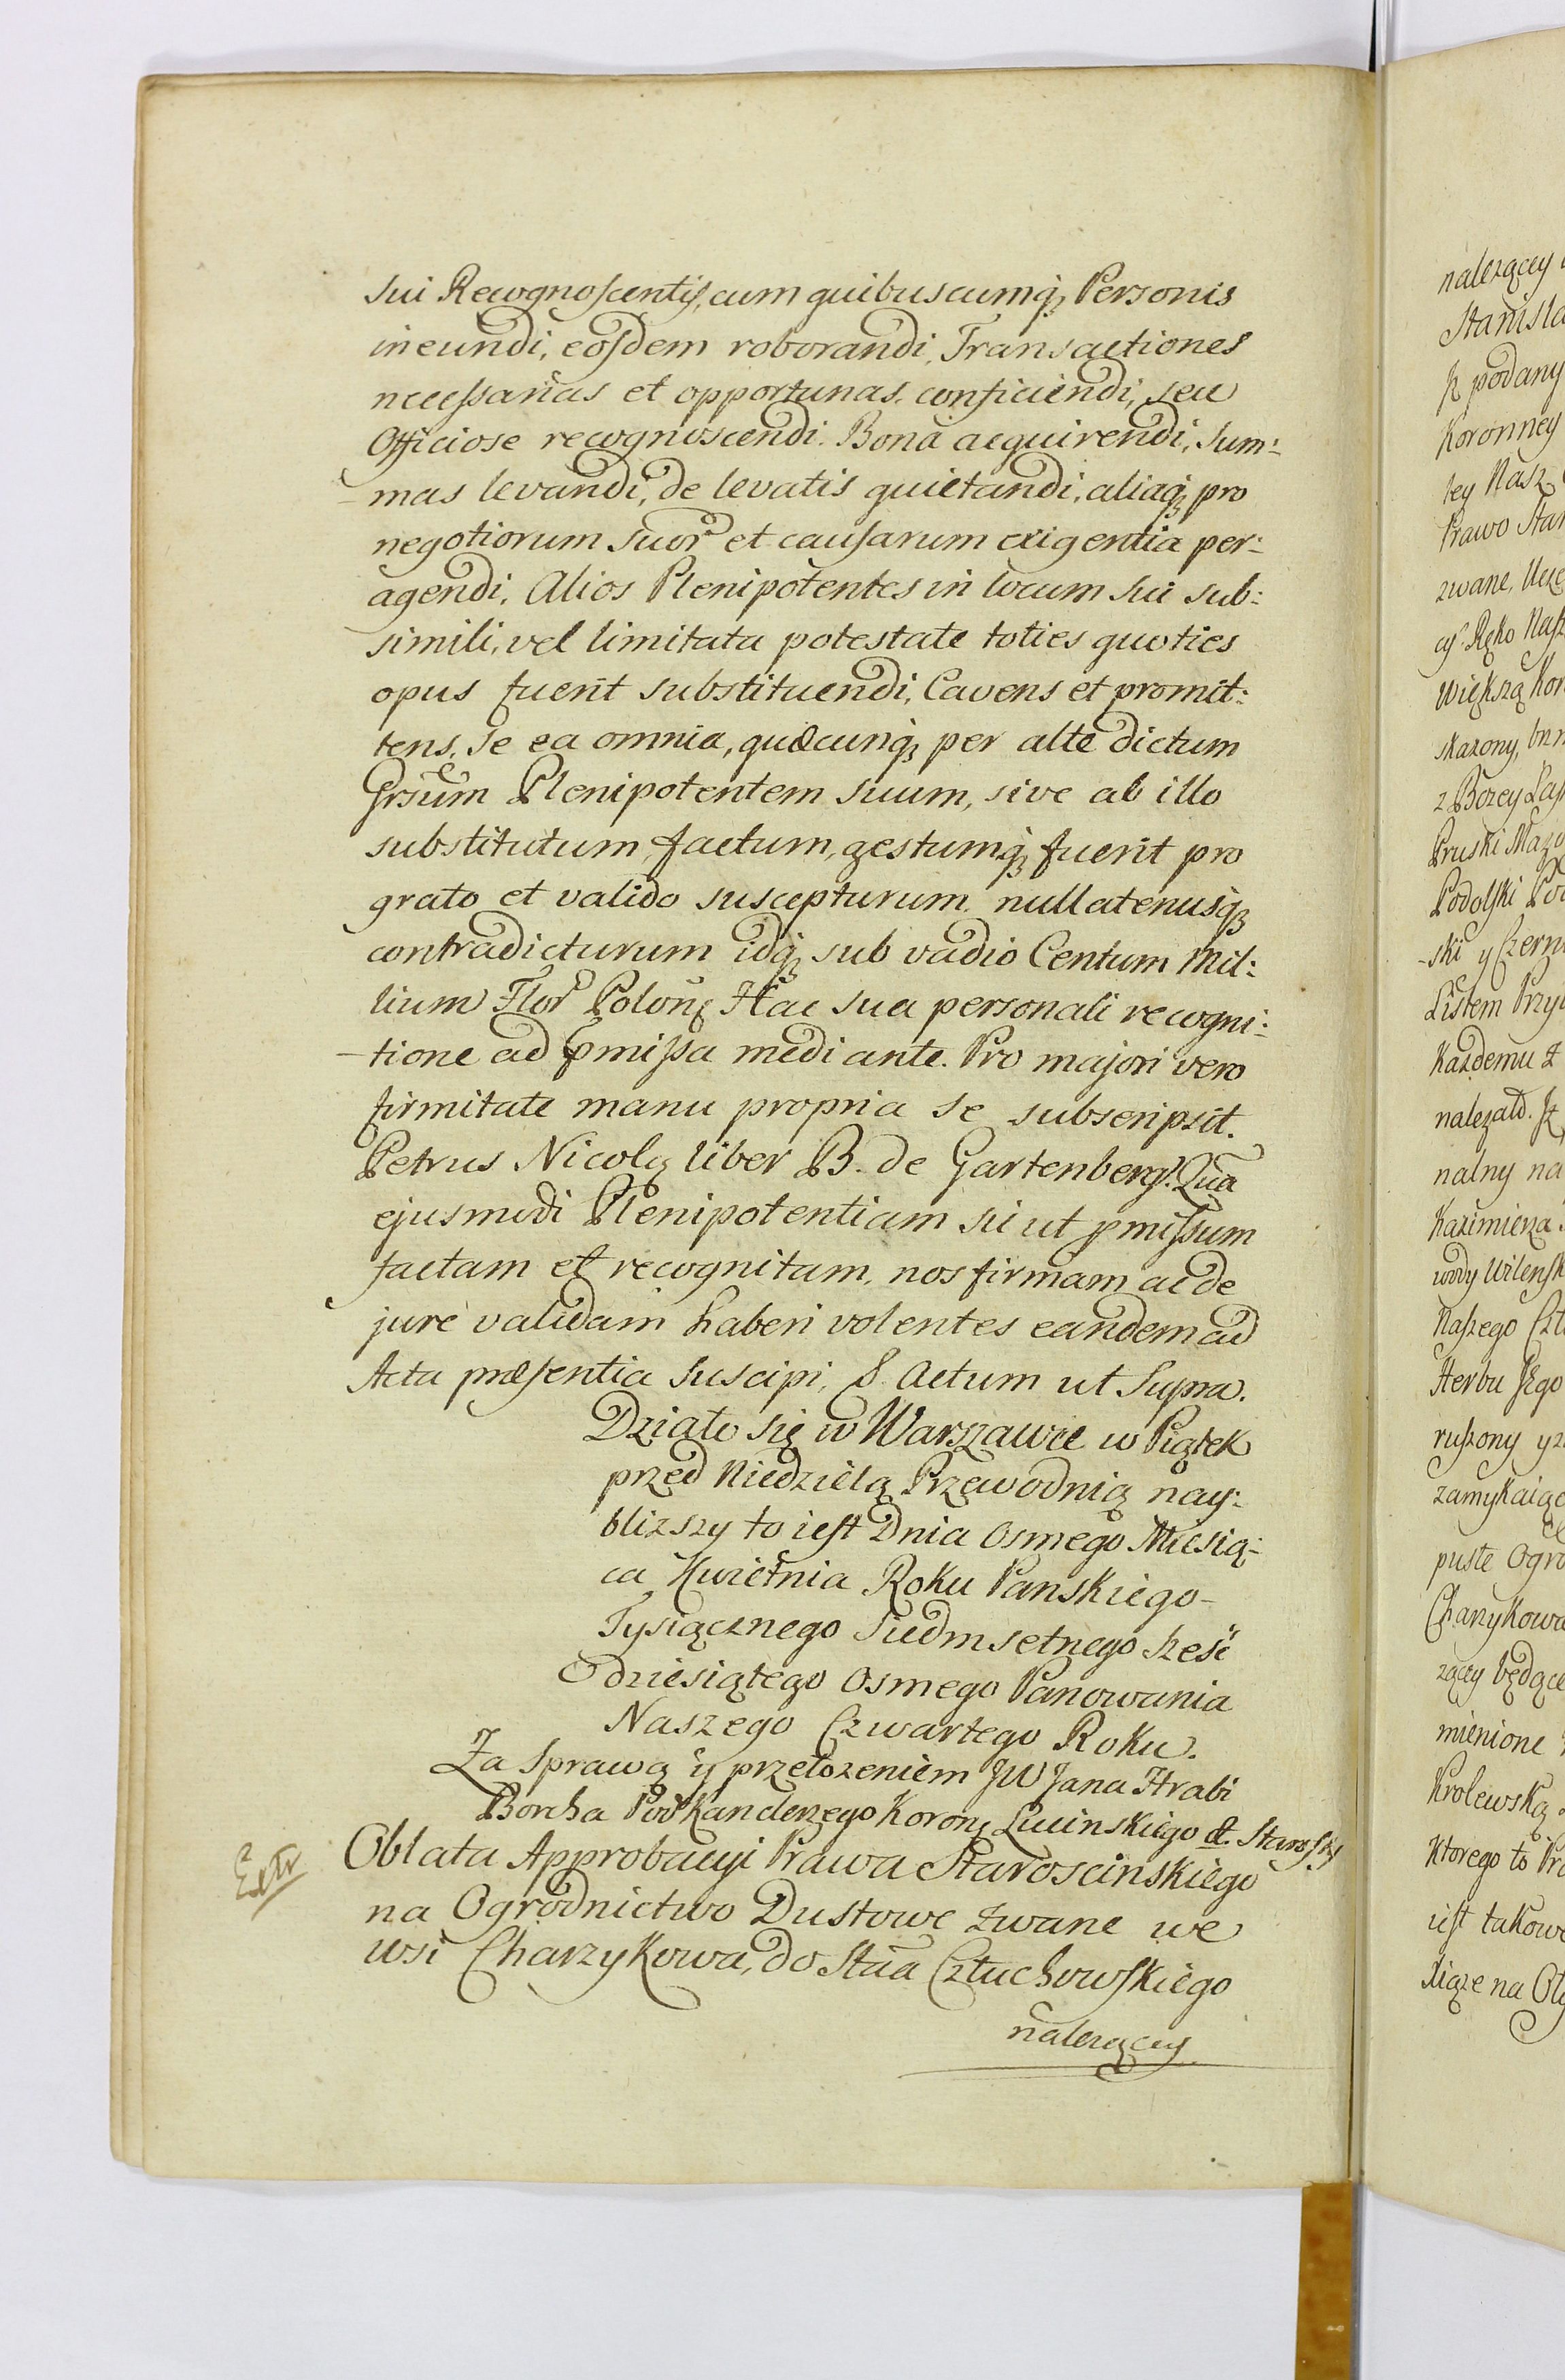 sui Recognoscentis, cum quibuscumq; Personis
ineundi, eosdem roborandi, Transactiones
necessarias et opportunas, conficiendi, seu
Officiose recognoscendi. Bona acquirendi, Sum-
mas levandi, de levatis quietandi, aliaq; pro
negotiorum suor et causarum exigentia per-
agendi, Alios Plenipotentes in locum sui sub-
simili, vel limitata potestate toties quoties
opus fuerit substituendi, Cavens et promit-
tens, se ea omnia, quæcunq; per alte dictum
Grsum Plenipotentem suum, sive ab illo
substitutum, factum, gestumq; fuerit pro
grato et valido suscepturum, nullatenusq;
contradicturum idq; sub vadio Centum Mil-
lium Flor Polon; Hac sua personali recogni-
tione ad pmissa mediante. Pro majori vero
firmitate manu propria se subscripsit.
Petrus Nicolą liber B. de Gartenberg. Qua
ejusmodi Plenipotentiam sii ut pmissum
factam et recognitam, nos firmam ac de
jure validam haberi volentes eandem ad
Acta præsentia suscipi, & Actum ut Supra.
Działo się w Warszawie w Piątek
przed Niedzielą Przewodnią nay-
blizszy to iest Dnia Osmego Miesią-
ca Kwietnia Roku Panskiego
Tysiącznego Siedmsetnego Sześć
dziesiątego Osmego Panowania
Naszego Czwartego Roku.
Za Sprawą y przełozeniem JW Jana Hrabi
Borcha Podkanclerzego Korong Liwinskiego &
Extr
Oblata Approbacyi Prawa Staroscinskiego
na Ogrodnictwo Dustowe zwane we
wsi Charzykowa, do Stua Człuchowskiego
nalezącey
nalezącey
Stanisła
Jż podany
Koronney
tey Nasz
Prawo Star
zwane, Ucze
Ręko Nasz
Większą Kor
z Bozey Łas
Pruski Mazo
Podolski Pod
-ski y Czerni
Listem Przy
Kazdemu z
nalezało. Jż
nalny na
Kazimierza
wody Wilensk
Naszego Czł
Herbu Jego
ruszony y z
zamykaiąc
puste Ogro
Charzykowa
zącey będące
mienione
Krolewską
Ktorego to Pra
iest takowe
Xiąze na Oły